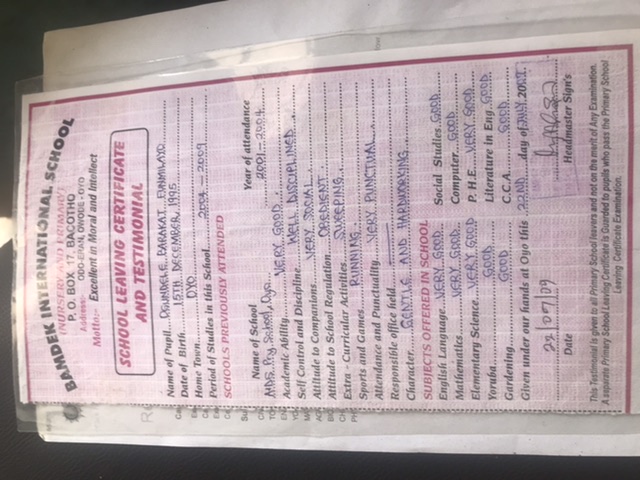 BAMDEK INTERNATIONAL SCHOOL
(NURSERY AND PRIMARY)
P. O. BOX 17, BACOTHO
Address:- ODO-ERAN, OWODE - OYO
Motto:- Excellent in Moral and Intellect
SCHOOL LEAVING CERTIFICATE
AND TESTIMONIAL
Name of Pupil BARAKAT FUNMILAYO
Date of Birth 15TH DECEMBER, 1995
Home Town OYO
Period of Studies in this School 2004 - 2009
SCHOOLS PREVIOUSLY ATTENDED
Name of School Year of attendance
Pry School, Oyo. 2001-2004
Academic Ability VERY GOOD
Self Control and Discipline WELL DISCIPLINED
Attitude to Companions VERY SOCIAL
Attitude to School Regulation OBEDIENT
Extra - Curricular Activities SWEEPING
Sports and Games RUNNING
Attendance and Punctuality VERY PUNCTUAL
Responsible office held
Character GENTLE AND HARDWORKING
SUBJECTS OFFERED IN SCHOOL
English Language VERY GOOD Social Studies GOOD
Mathematics VERY GOOD Computer GOOD
Elementary Science VERY GOOD P. H. E. VERY GOOD
Yoruba GOOD Literature in Eng GOOD
Gardening GOOD C.C.A. GOOD
Given under our hands at Oyo this 22ND day of JULY 2009
22/07/09
Date Headmaster Sign's
This Testimonial is given to all Primary School leavers and not on the merit of Any Examination.
A separate Primary School Leaving Certificate is Guarded to pupils who pass the Primary School
Leaving Certificate Examination.